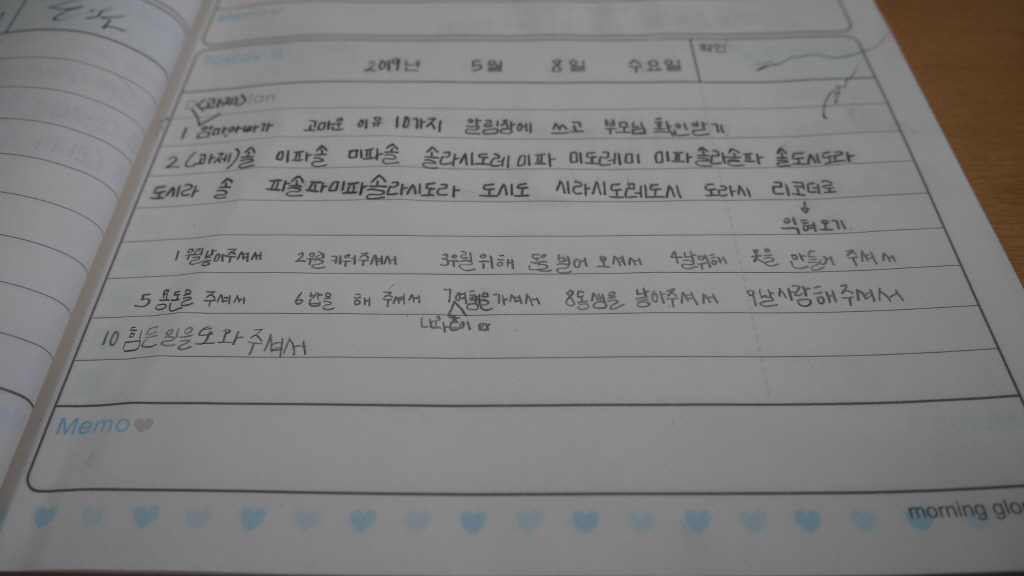 Memo
Today is
2019년 5월 8일 수요일
확인
(과제)
1 엄마아빠가 고마운 이유 10가지 알림장에 쓰고 부모님 확인받기
2 (과제)솔 미파솔 미파솔 솔라시도레 미파 미도레미 미파 솔라솔파 솔도시도라
도시라 솔 파솔파미파솔라시도라 도시도 시라시도레도시 도라시 리코더로
↓
익혀오기
1 낳아주셔서 2 키워주셔서 3 위해 돈을 벌어 오셔서 4 날위해 옷을 만들어 주셔서
5 용돈을 주셔서 6 밥을 해 주셔서 7 여행을가셔서 8동생을 낳아주셔서 9날사랑해주셔서
10 힘든일을도와주셔서
Memo
morning glo